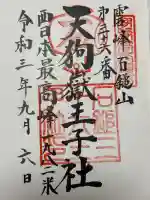 霊峰石鎚山
第二十六番
天狗嶽王子社
西日本最高峰一九八二米
令和三年九月六日